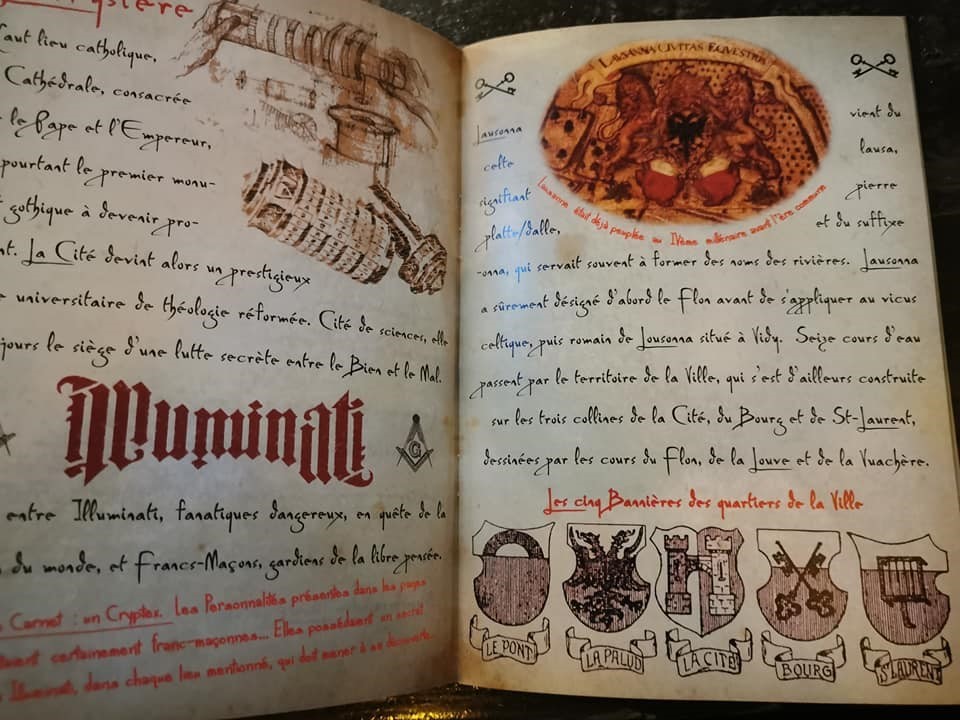 ystère
aut lieu catholique,
Cathédrale, consacrée
le Pape et l'Empereur,
pourtant le premier monu-
gothique à devenir pro-
nt. La Cité devint alors un prestigieux
e universitaire de théologie réformée. Cité de sciences, elle
jours le siège d'une lutte secrète entre le Bien et le Mal.
Illuminati
G
entre Illuminati, fanatiques dangereux, en quête de la
du monde, et Francs-Maçons, gardiens de la libre pensée.
Carnet : un Cryptex. Les Personnalités présentées dans les pages
étaient certainement franc-maçonnes... Elles possédaient un secret
Illuminati, dans chaque lieu mentionné, qui doit mener à sa découverte.
LAUSANNA CIVITAS EQUESTRIS
Lausanne était déjà peuplée au IVème millénaire avant l'ère commune
Lausonna vient du
celte lausa,
signifiant pierre
platte/dalle, et du suffixe
-onna, qui servait souvent à former des noms des rivières. Lausonna
a sûrement désigné d'abord le Flon avant de s'appliquer au vicus
celtique, puis romain de Lousonna situé à Vidy. Seize cours d'eau
passent par le territoire de la Ville, qui s'est d'ailleurs construite
sur les trois collines de la Cité, du Bourg et de St-Laurent,
dessinées par les cours du Flon, de la Louve et de la Vuachère.
Les cinq Bannières des quartiers de la Ville
LE PONT
LA PALUD
LA CITÉ
BOURG
St LAURENT